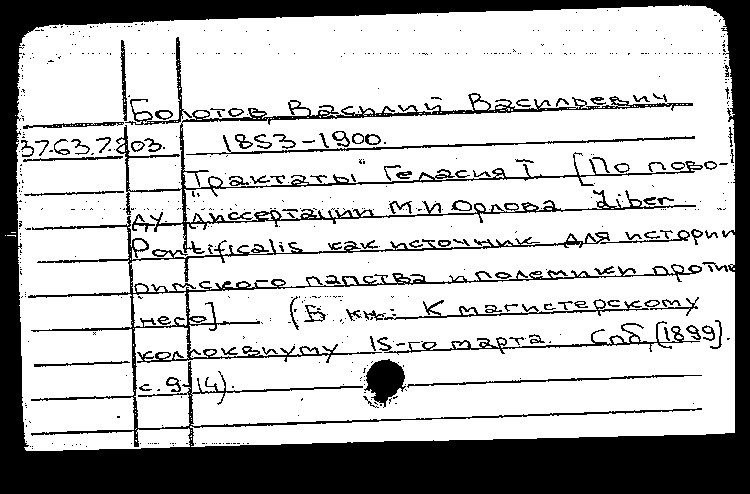 Болотов, Василий Васильевич,
37.63.7.803. 1853-1900.
"Трактаты" Геласия I. [По пово-
ду диссертации М.И Орлова Liber
Pontificalis как источник для истории
римского папства и полемики против
него]. (В кн.: К магистерскому
коллоквиуму 15-го марта. Спб, [1899].
с. 9-14).